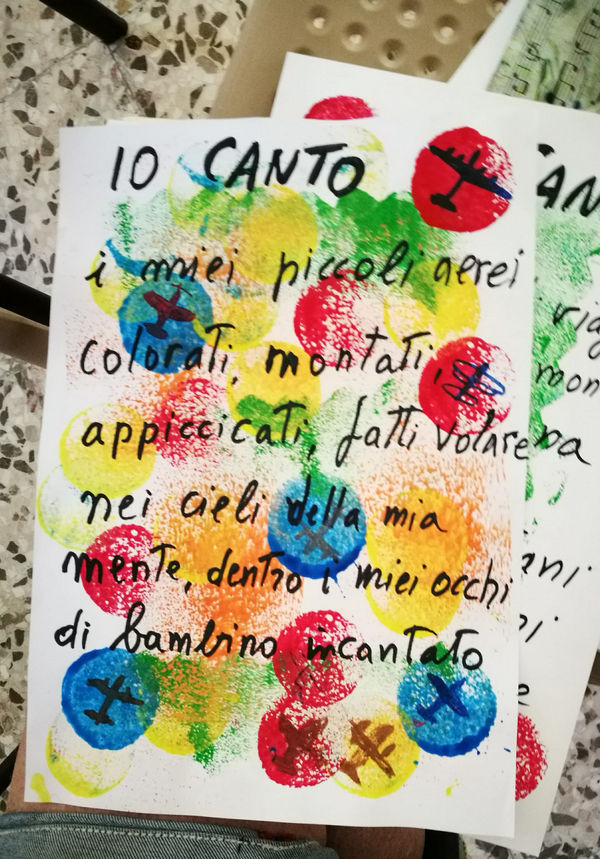 IO CANTO
i miei piccoli aerei
colorati, montati,
appiccicati, fatti volare
nei cieli della mia
mente, dentro i miei occhi
di bambino incantato